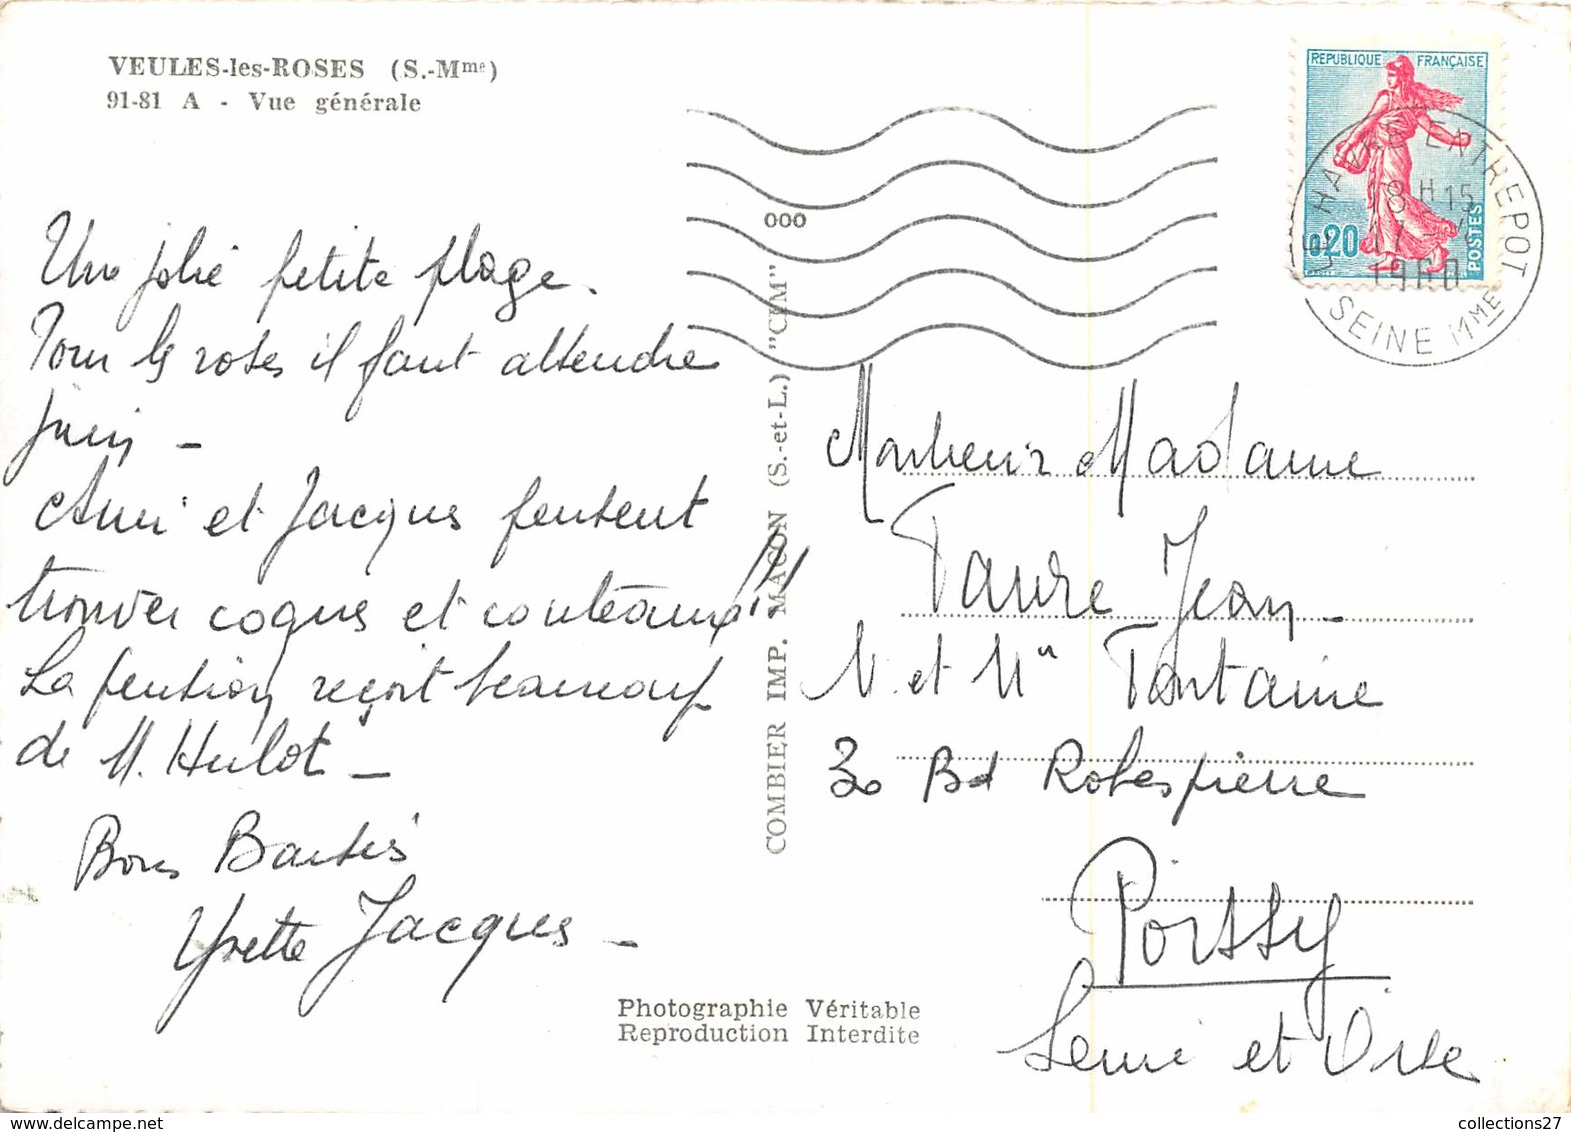 VEULES-les-ROSES (S.-Mme)
91-81 A - Vue générale
Une jolie petite plage.
Pour les roses il faut attendre
juin -
et Jacques pensent
trouver coques et couteaux !!!
La pension reçoit beaucoup
de M. Hulot -
Bons Baisers
Yvette Jacques -
COMBIER IMP. MACON (S.-et-L.) "CIM"
Photographie Véritable
Reproduction Interdite
000
REPUBLIQUE FRANÇAISE
0,20
POSTES
LE HAVRE ENTREPOT
18H15
17
1960
SEINE MME
Monsieur Madame
Faure Jean -
M. et Me Fontaine
30 Bd Robespierre
Poissy
Seine et Oise
collections27